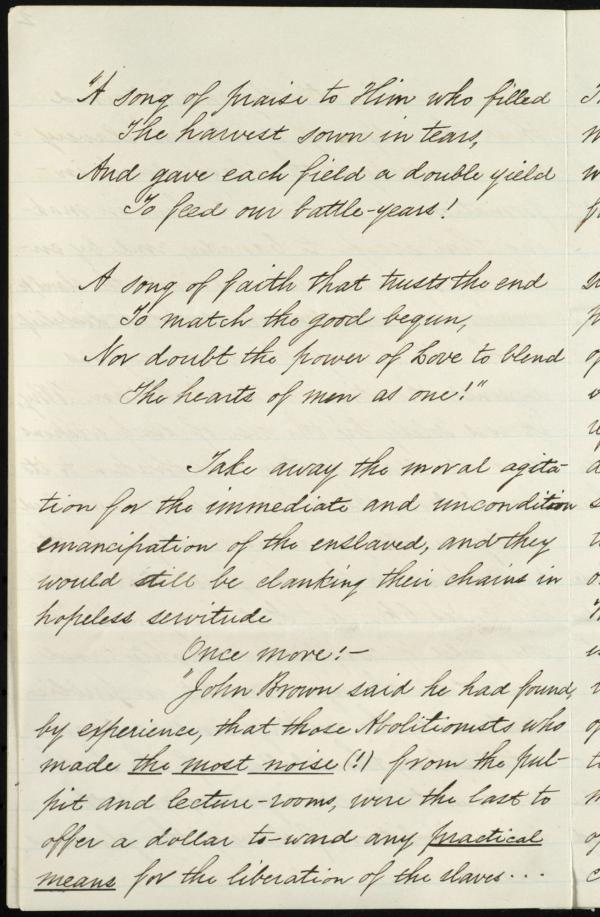 "A song of praise to Him who filled
The harvest sown in tears,
And gave each field a double yield
To feed our battle-years!
A song of faith that trusts the end
To match the good begun,
Nor doubt the power of Love to blend
The hearts of men as one!"
Take away the moral agita-
tion for the immediate and uncondition
emancipation of the enslaved, and they
would still be clanking their chains in
hopeless servitude
Once more:-
"John Brown said he had found,
by experience, that those Abolitionists who
made the most noise (!) from the pul-
pit and lecture-rooms, were the last to
offer a dollar to-ward any practical
means for the liberation of the slaves...